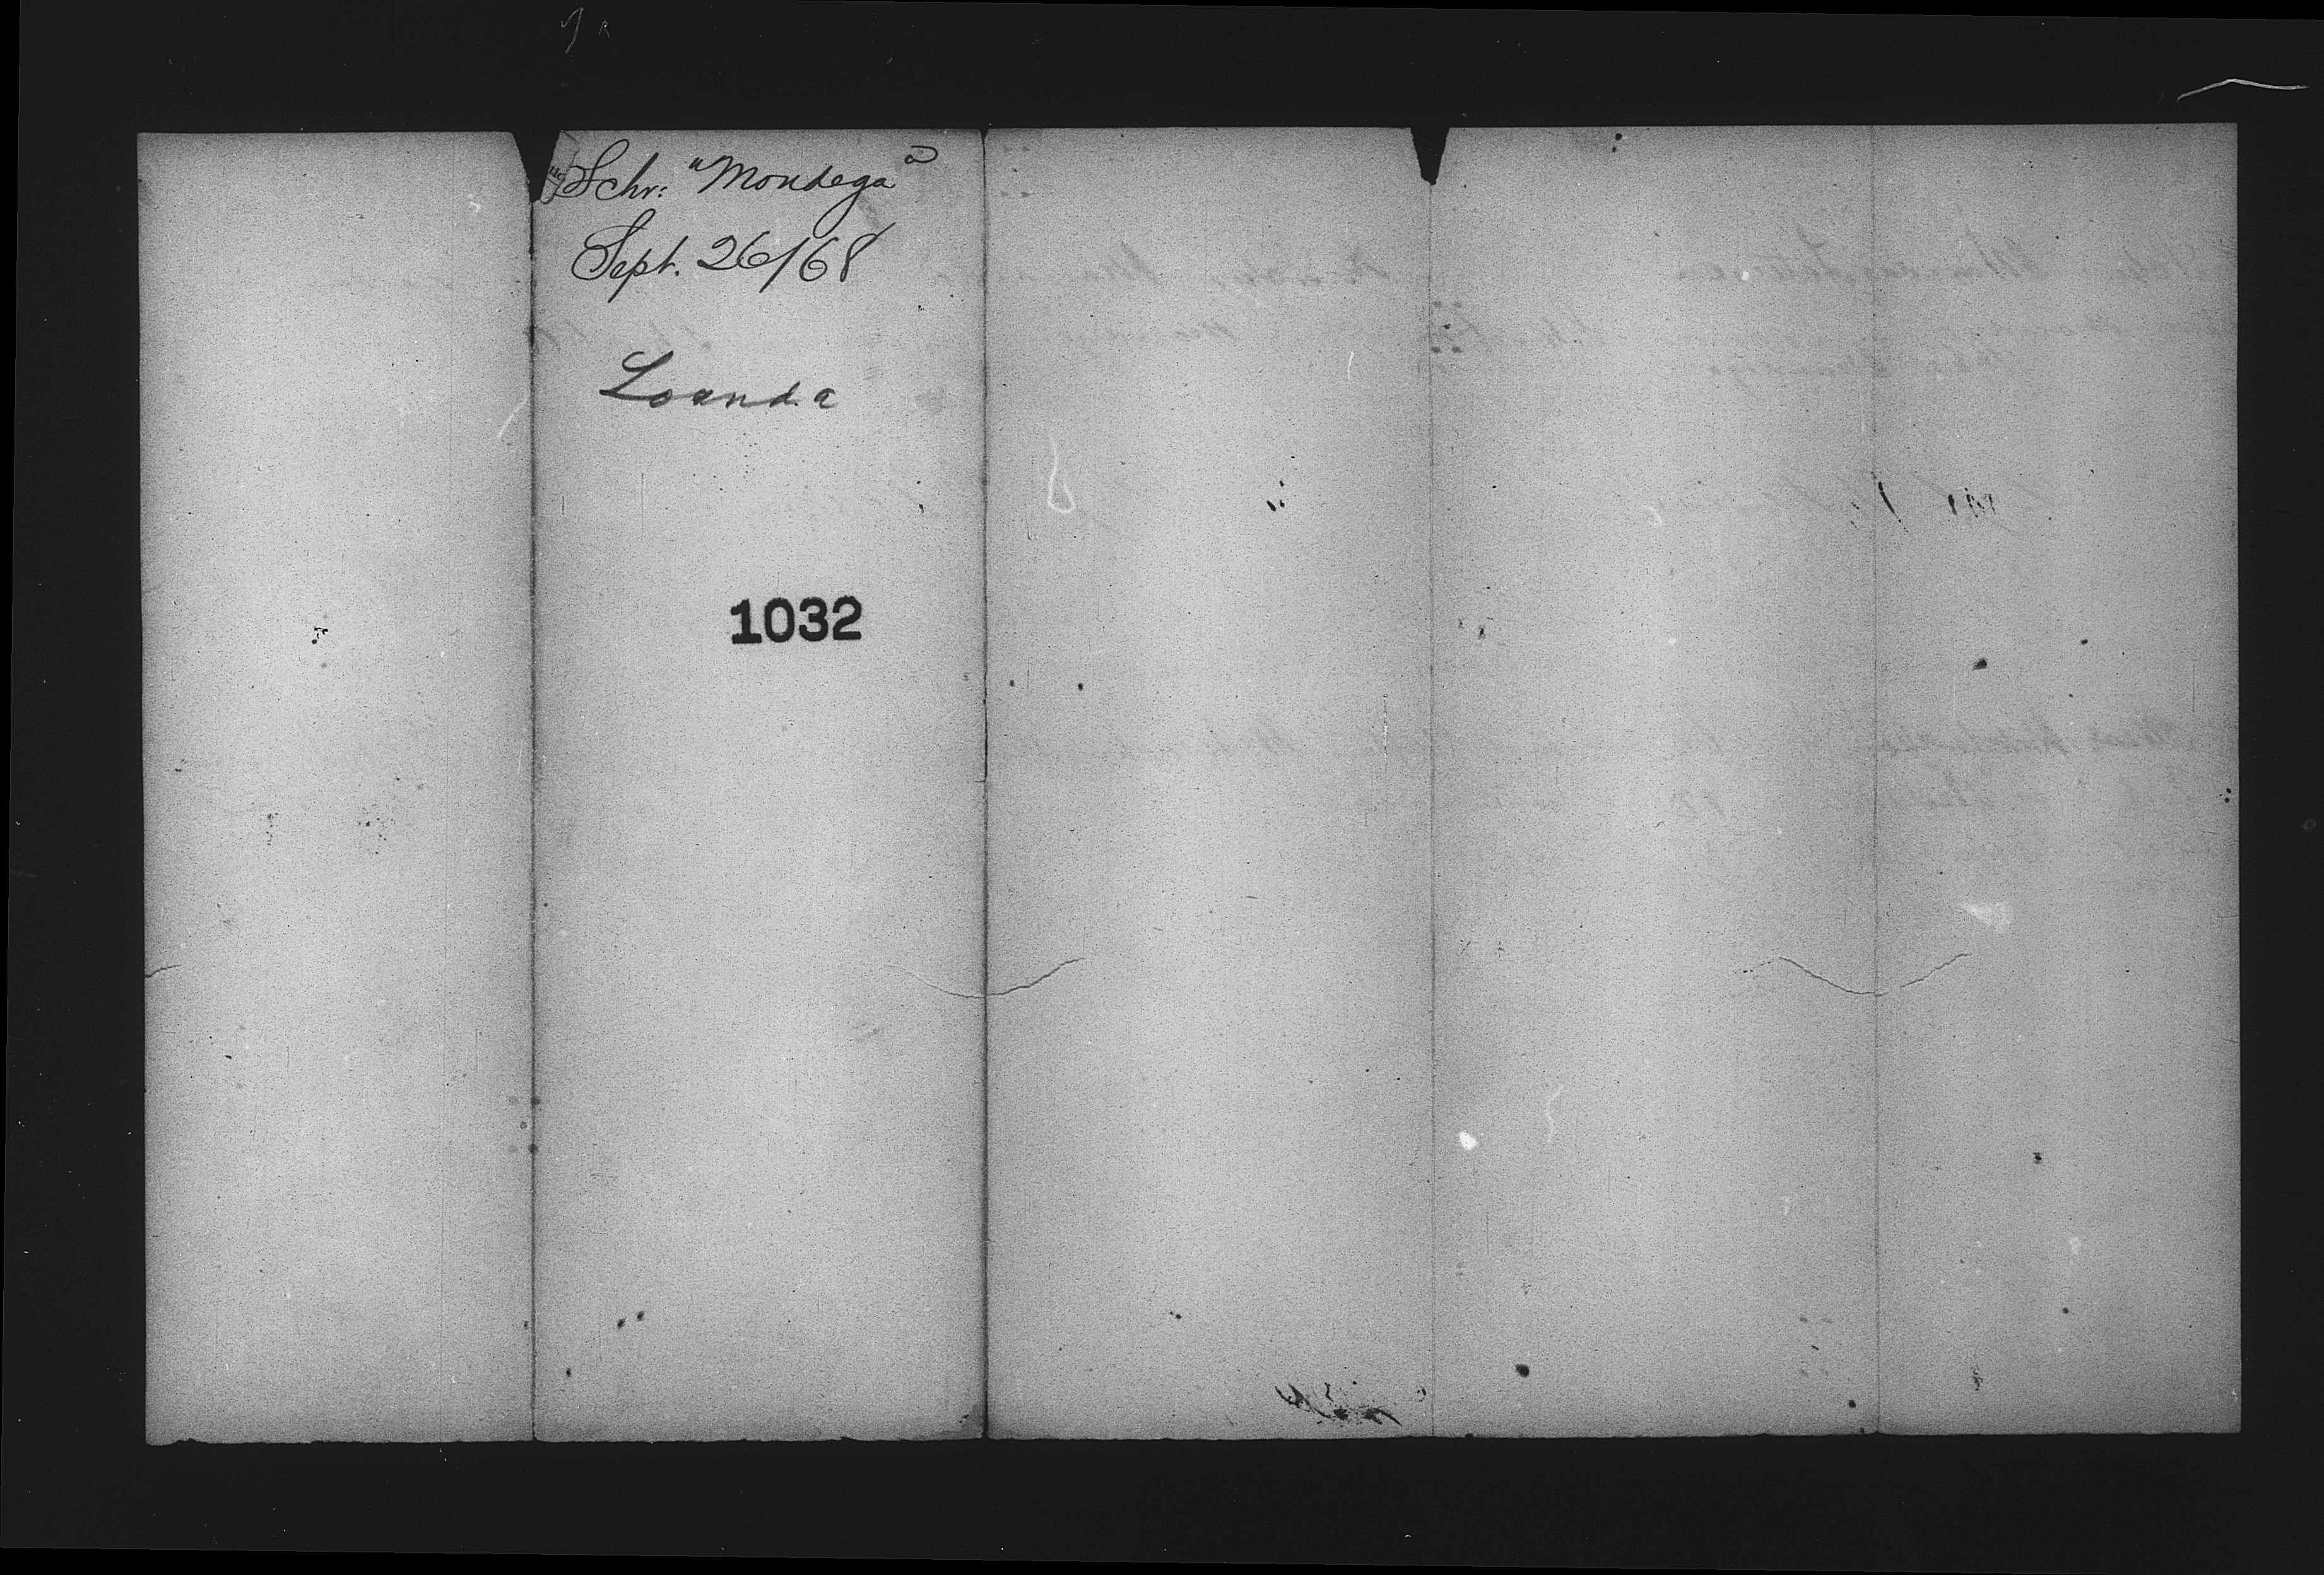 Schr: "Mondega"
Sept. 26/68
Loanda
1032